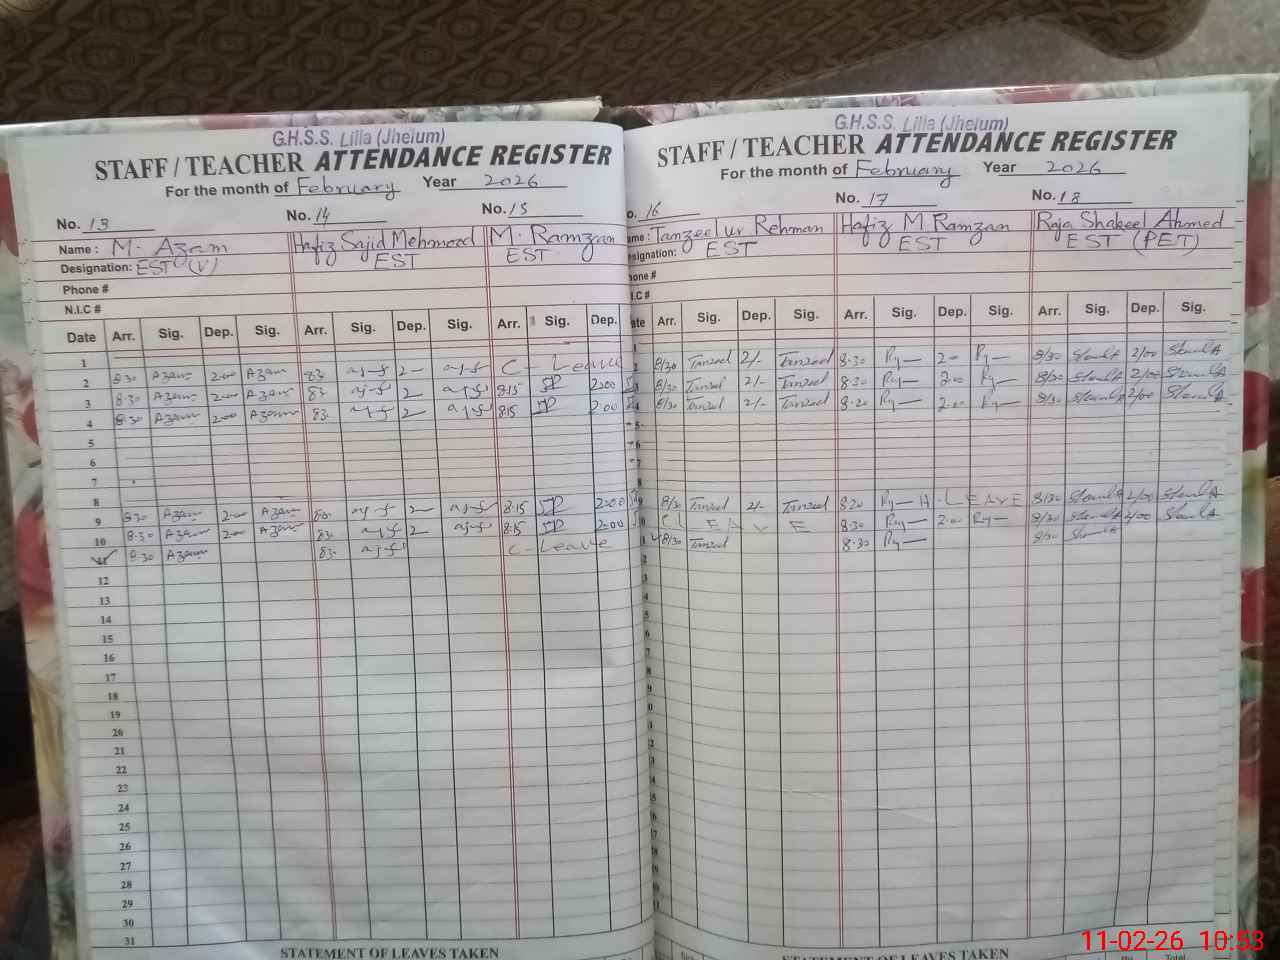 G.H.S.S. Lilla (Jhelum)
STAFF / TEACHER ATTENDANCE REGISTER
For the month of February Year 2026
No. 13 No. 14 No. 15
Name : M. Azam Hafiz Sajid Mehmood M. Ramzan
Designation: EST (V) EST EST
Phone #
N.I.C #
Date Arr. Sig. Dep. Sig. Arr. Sig. Dep. Sig. Arr. Sig. Dep.
1
2 8:30 Azam 2:00 Azam 83 2 C- Leave
3 8:30 Azam 2:00 Azam 83 2 8:15 2:00
4 8:30 Azam 2:00 Azam 83 2 8:15 2:00
5
6
7
8
9 8:30 Azam 2:00 Azam 83 2 8:15 2:00
10 8:30 Azam 2:00 Azam 83 2 8:15 2:00
11 8:30 Azam 83 C-Leave
12
13
14
15
16
17
18
19
20
21
22
23
24
25
26
27
28
29
30
31
STATEMENT OF LEAVES TAKEN
G.H.S.S. Lilla (Jhelum)
STAFF / TEACHER ATTENDANCE REGISTER
For the month of February Year 2026
16 No. 17 No. 18
Tanzeel ur Rehman Hafiz M Ramzan Raja Shakeel Ahmed
EST EST EST (PET)
Arr. Sig. Dep. Sig. Arr. Sig. Dep. Sig. Arr. Sig. Dep. Sig.
8/30 Tanzeel 2/- Tanzeel 8:30 2:00 8/30 2/00
8/30 Tanzeel 2/- Tanzeel 8:30 2:00 8/30 2/00
8/30 Tanzeel 2/- Tanzeel 8:30 2:00 8/30 2/00
8/30 Tanzeel 2/- Tanzeel 8:30 H-LEAVE 8/30 2/00
C LEAVE 8:30 2:00 8/30 2/00
8/30 Tanzeel 8:30 8/30
STATEMENT OF LEAVES TAKEN
Total
11-02-26 10:53